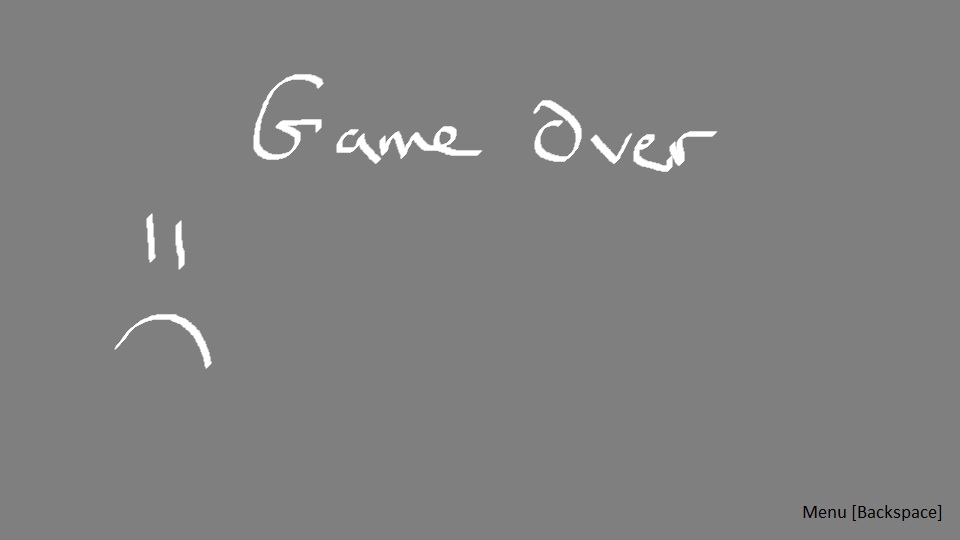 Game Over
Menu [Backspace]